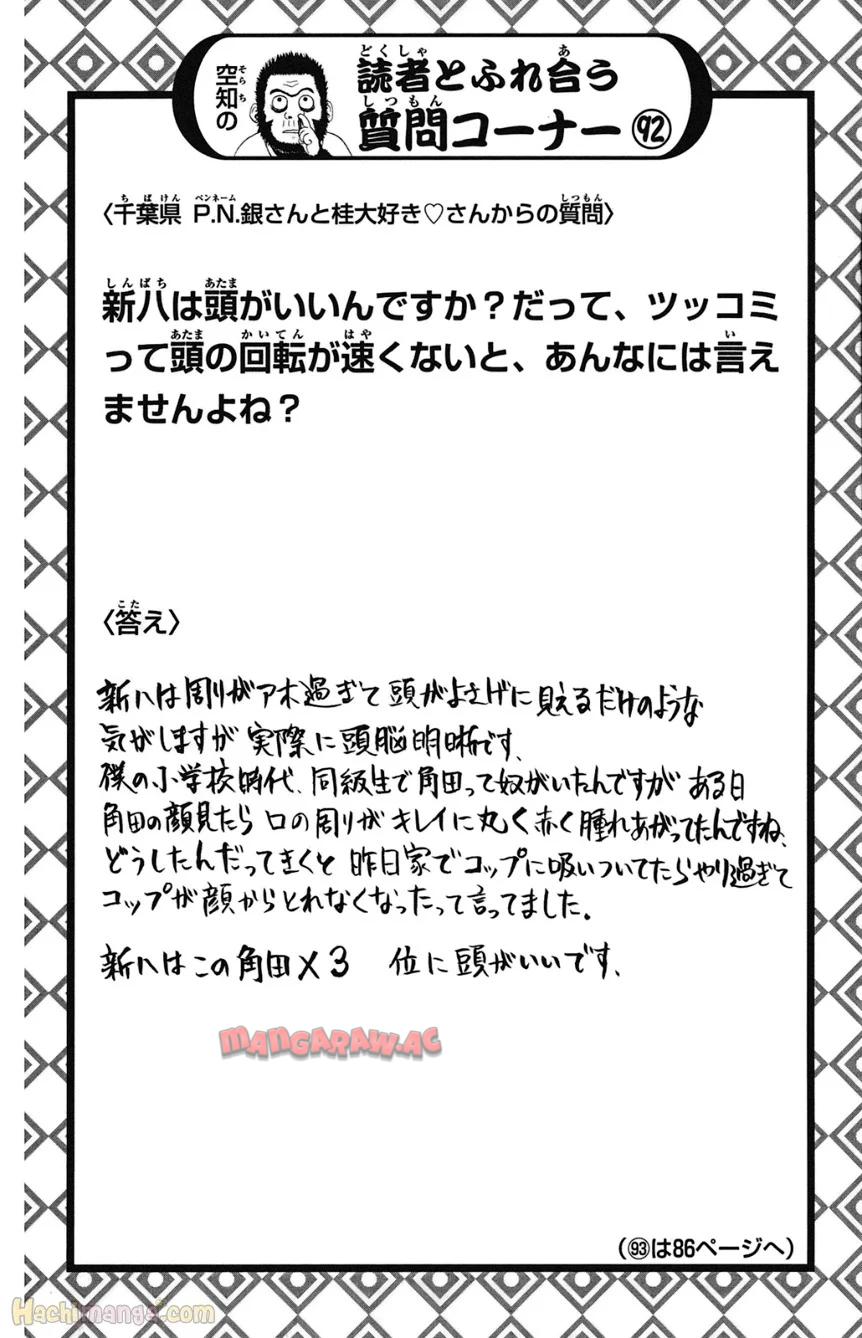 空知の
読者とふれ合う
質問コーナー㊒
〈千葉県 P.N.銀さんと桂大好き♡さんからの質問〉
新八は頭がいいんですか？だって、ツッコミ
って頭の回転が速くないと、あんなには言え
ませんよね？
〈答え〉
新八は周りがアホ過ぎて頭がよさげに見えるだけのような
気がしますが実際に頭脳明晰です。
僕の小学校時代、同級生で角田って奴がいたんですがある日
角田の顔見たら口の周りがキレイに丸く赤く腫れあがってたんですね、
どうしたんだってきくと昨日家でコップに吸いついてたらやり過ぎて
コップが顔からとれなくなったって言ってました。
新八はこの角田×3 位に頭がいいです。
MANGARAW.AC
(93は86ページへ)
Hachimanga.com